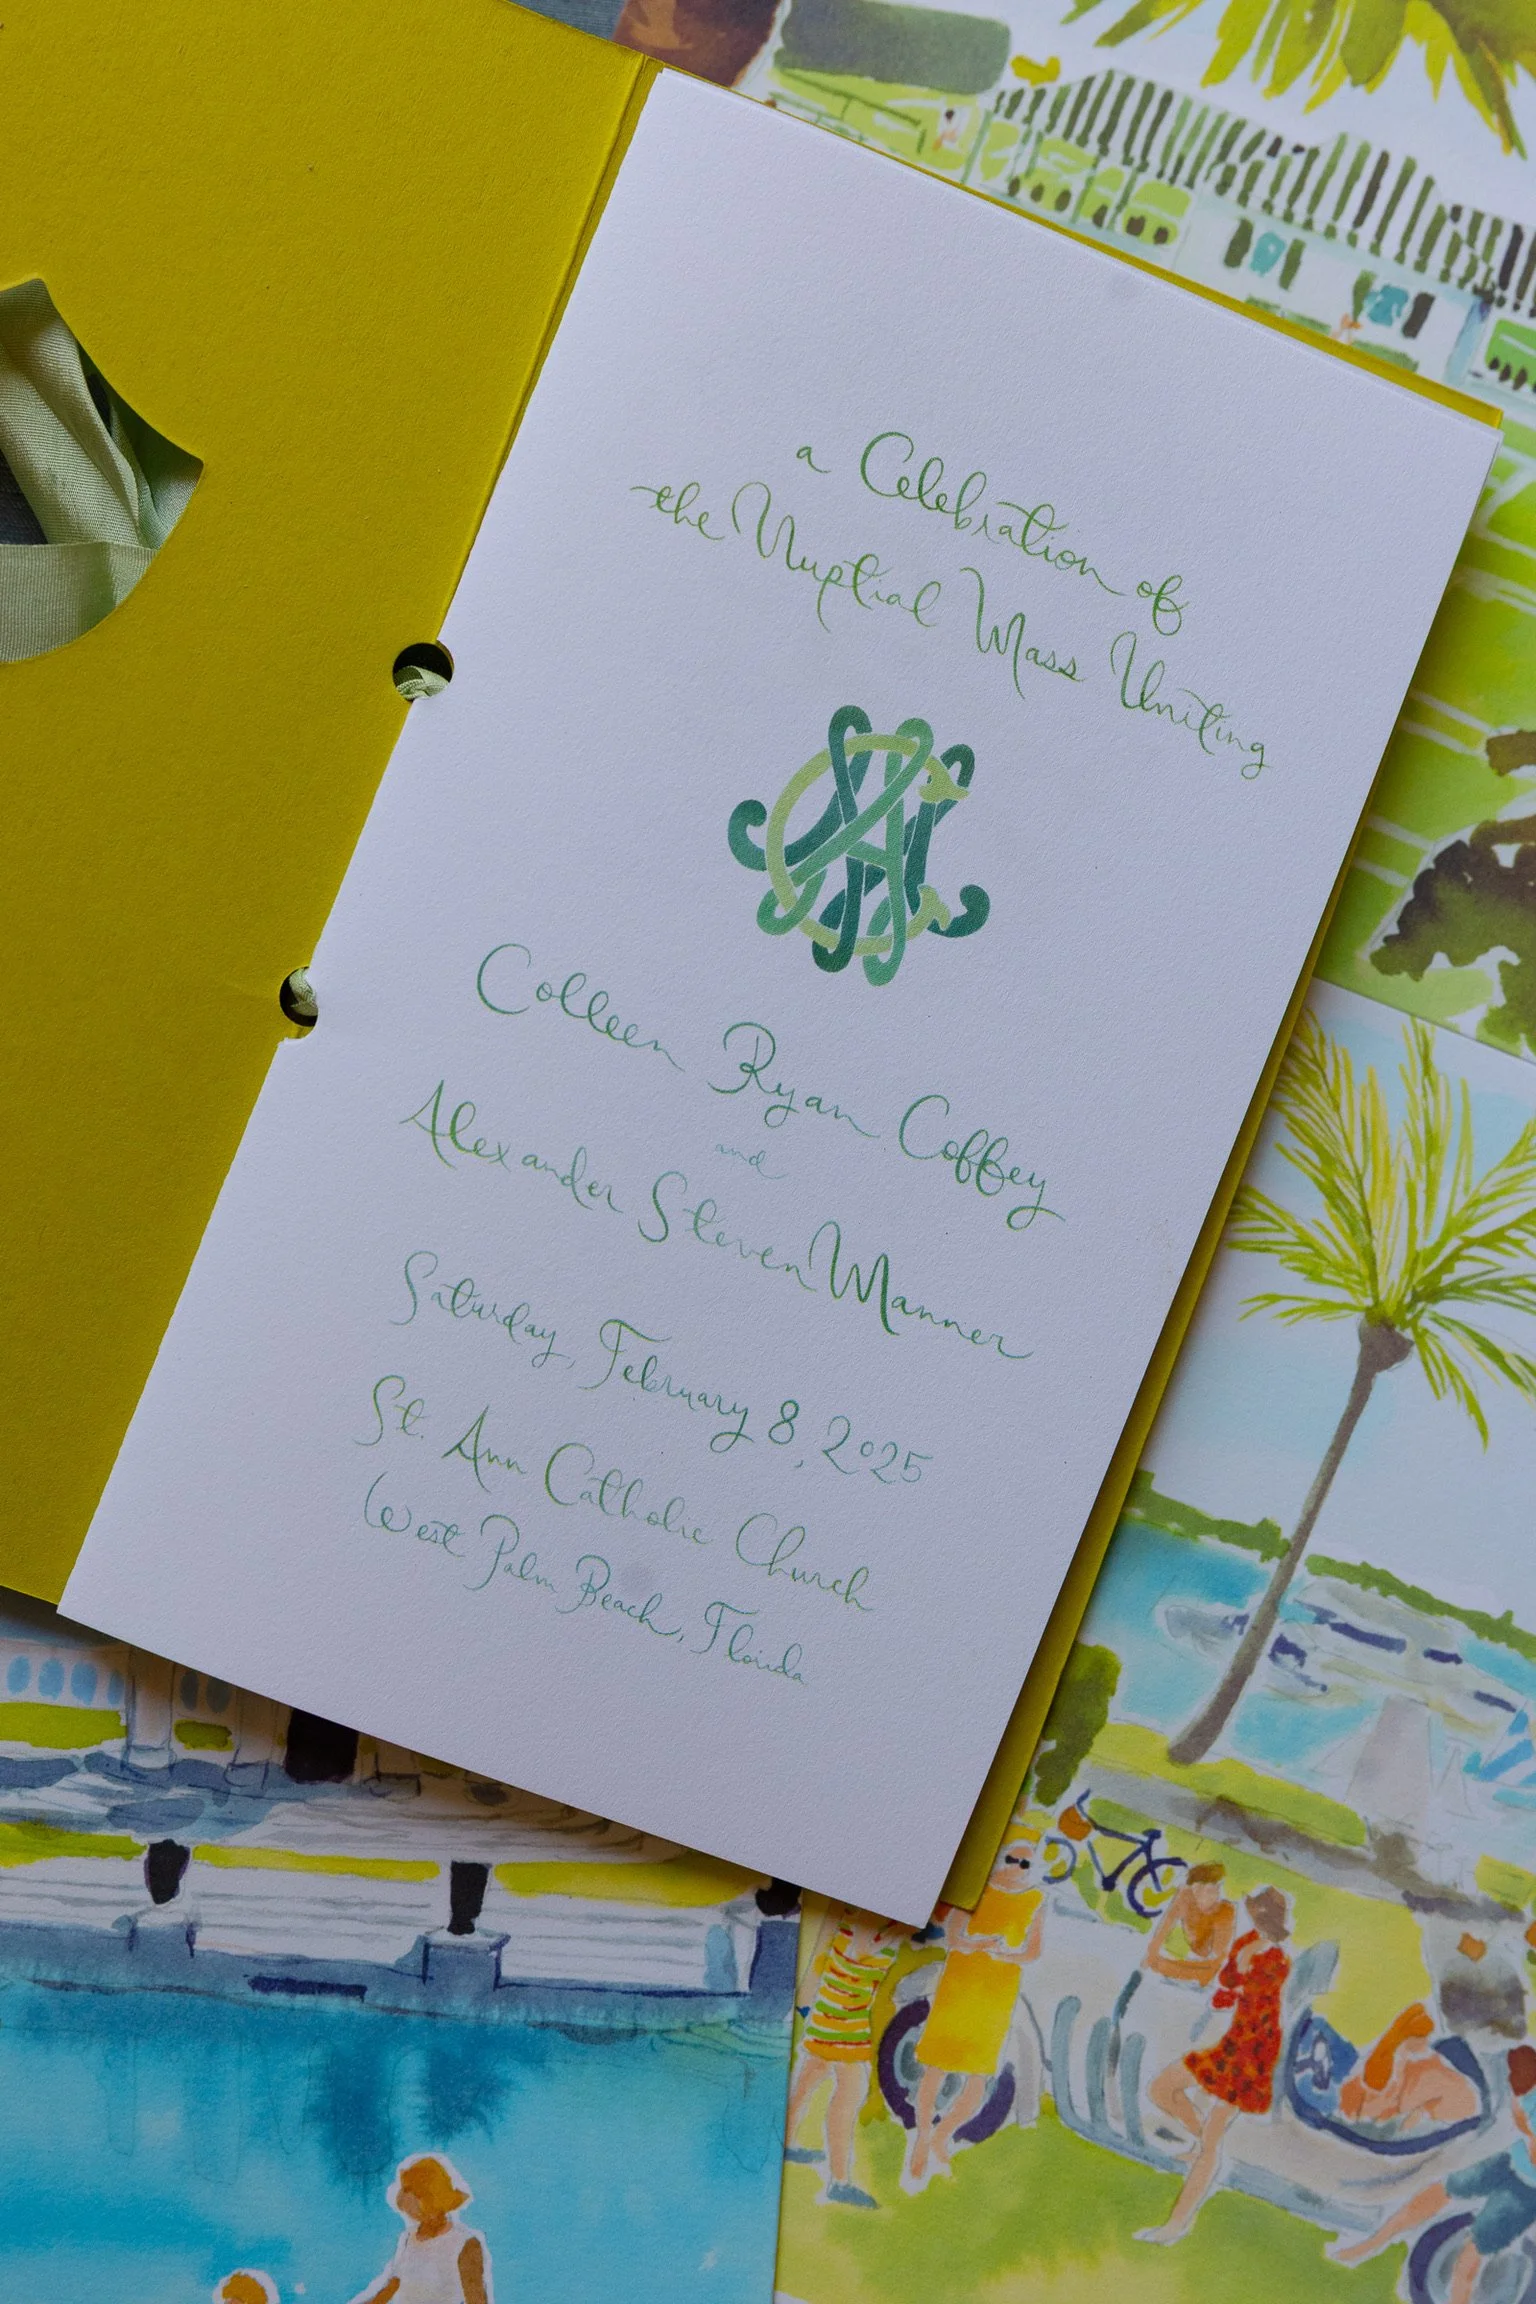 a Celebration of
the Nuptial Mass Uniting
Colleen Ryan Coffey
and
Alexander Steven Manner
Saturday, February 8, 2025
St. Ann Catholic Church
West Palm Beach, Florida